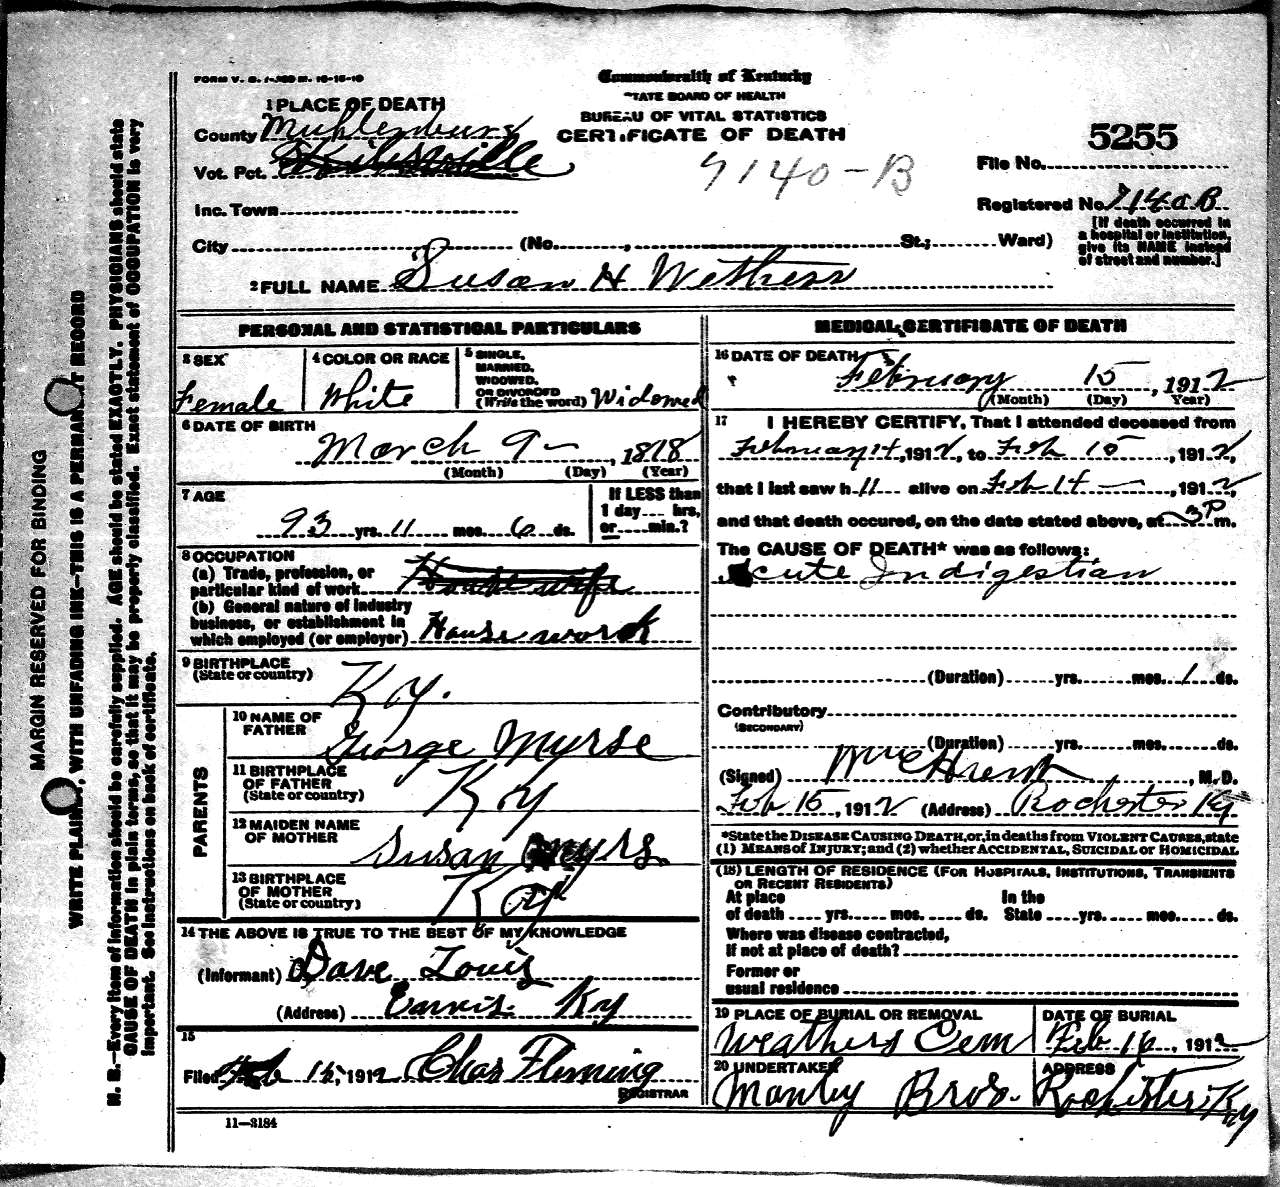 FORM V. S. 1-
Commonwealth of Kentucky
STATE BOARD OF HEALTH
BUREAU OF VITAL STATISTICS
CERTIFICATE OF DEATH
1 PLACE OF DEATH
County Muhlenburg
Vot. Pct.
Inc. Town
City (No. , St.; Ward)
9140-B
5255
File No.
Registered No. 9140B
[If death occurred in
a hospital or institution,
give its NAME instead
of street and number.]
2 FULL NAME Susan H Wethers
PERSONAL AND STATISTICAL PARTICULARS
3 SEX
Female
4 COLOR OR RACE
White
5 SINGLE,
MARRIED,
WIDOWED,
OR DIVORCED
(Write the word) Widowed
6 DATE OF BIRTH
March 9 - , 1818
(Month) (Day) (Year)
7 AGE
93 yrs. 11 mos. 6 ds.
If LESS than
1 day hrs,
or min.?
8 OCCUPATION
(a) Trade, profession, or
particular kind of work Housewife
(b) General nature of industry
business, or establishment in
which employed (or employer) Housework
9 BIRTHPLACE
(State or country)
Ky.
PARENTS
10 NAME OF
FATHER
George Myrse
11 BIRTHPLACE
OF FATHER
(State or country)
Ky
12 MAIDEN NAME
OF MOTHER
Susan
13 BIRTHPLACE
OF MOTHER
(State or country)
Ky
14 THE ABOVE IS TRUE TO THE BEST OF MY KNOWLEDGE
(Informant) Dave Louis
(Address) Ky
15
Filed Feb 15, 1912 Chas Fleming
REGISTRAR
11-3184
MEDICAL CERTIFICATE OF DEATH
16 DATE OF DEATH
February 15, 1912
(Month) (Day) Year)
17 I HEREBY CERTIFY, That I attended deceased from
February 14, 1912, to Feb 15, 1912,
that I last saw h alive on Feb 14 - , 1912,
and that death occured, on the date stated above, at 3P m.
The CAUSE OF DEATH* was as follows:
Acute Indigestion
(Duration) yrs. mos. 1 ds.
Contributory
(SECONDARY)
(Duration) yrs. mos. ds.
(Signed) , M. D.
Feb 15, 1912 (Address) Rochester Ky
*State the DISEASE CAUSING DEATH, or, in deaths from VIOLENT CAUSES, state
(1) MEANS of INJURY; and (2) whether ACCIDENTAL, SUICIDAL or HOMICIDAL
(18) LENGTH OF RESIDENCE (FOR HOSPITALS, INSTITUTIONS, TRANSIENTS
OR RECENT RESIDENTS)
At place In the
of death yrs. mos. ds. State yrs. mos. ds.
Where was disease contracted,
If not at place of death?
Former or
usual residence
19 PLACE OF BURIAL OR REMOVAL
Weathers Cem
DATE OF BURIAL
Feb 16, 1912
20 UNDERTAKER
Manley Bros.
ADDRESS
Rochister Ky
MARGIN RESERVED FOR BINDING
WRITE PLAINLY, WITH UNFADING INK-THIS IS A PERMANENT RECORD
N. B.-Every item of information should be carefully supplied. AGE should be stated EXACTLY. PHYSICIANS should state
CAUSE OF DEATH in plain terms, so that it may be properly classified. Exact statement of OCCUPATION is very
important. See instructions on back of certificate.